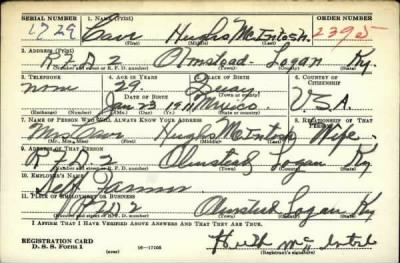 SERIAL NUMBER 1. NAME (Print) ORDER NUMBER
1729 Hughs McIntosh 2390
(First) (Middle) (Last)
2. ADDRESS (Print)
R F D 2 Olmstead Logan Ky.
(Number and street or R. F. D. number) (Town) (County) (State)
3. TELEPHONE 4. AGE IN YEARS 5. PLACE OF BIRTH 6. COUNTRY OF CITIZENSHIP
none 29 Quay
DATE OF BIRTH (Town or county)
Jan 23 1911 Mexico U.S.A.
(Exchange) (Number) (Mo.) (Day) (Yr.) (State or country)
7. NAME OF PERSON WHO WILL ALWAYS KNOW YOUR ADDRESS 8. RELATIONSHIP OF THAT PERSON
Mrs Hughs McIntosh Wife
(Mr., Mrs., Miss) (First) (Middle) (Last)
9. ADDRESS OF THAT PERSON
R F D 2 Olmstead Logan Ky
(Number and street or R. F. D. number) (Town) (County) (State)
10. EMPLOYER'S NAME
Self Farmer
11. PLACE OF EMPLOYMENT OR BUSINESS
R F D 2 Olmstead Logan Ky
(Number and street or R. F. D. number) (Town) (County) (State)
I AFFIRM THAT I HAVE VERIFIED ABOVE ANSWERS AND THAT THEY ARE TRUE.
REGISTRATION CARD
D. S. S. Form 1 (over) 16-17105 (Registrant's signature)